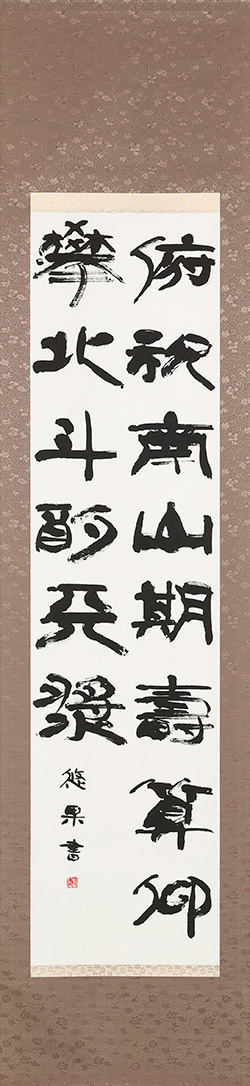 俯祝南山期壽算仰
攀北斗酌天漿
悠果書